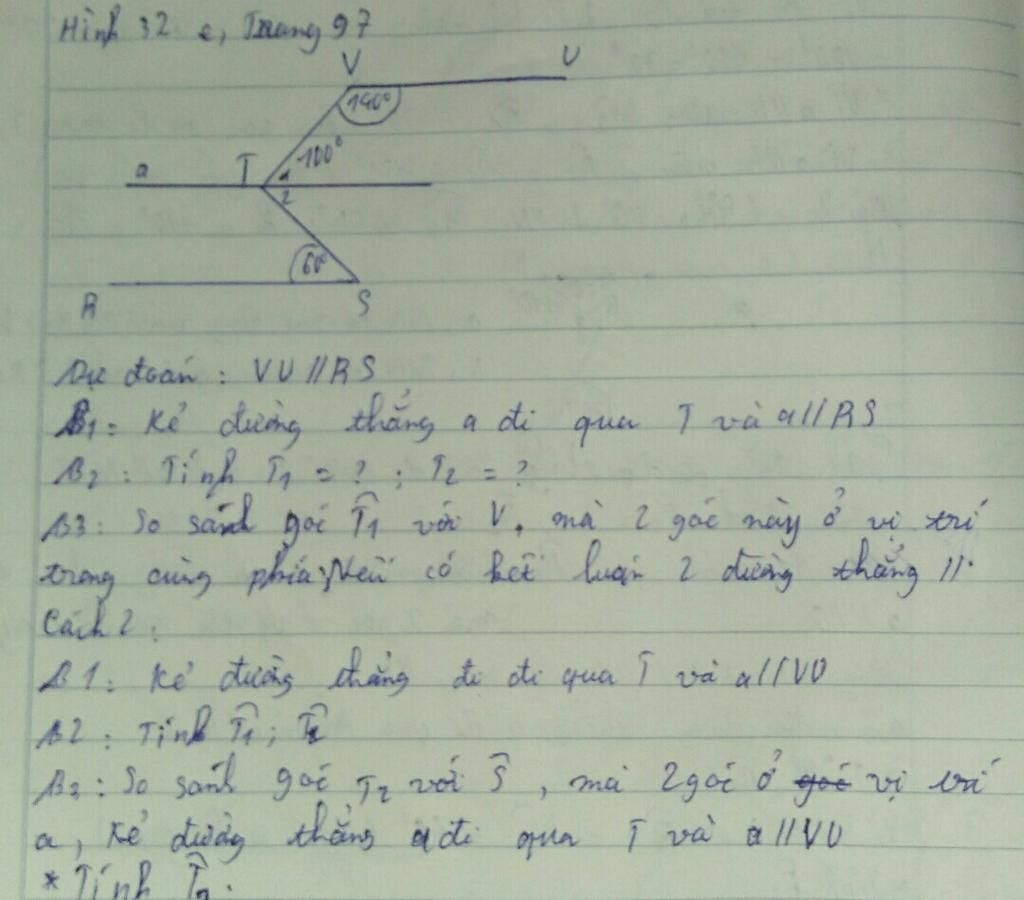 Hình 32 c, Trang 97
V U
140°
T 100°
a 1
2
60°
R S
Dự đoán : VU // RS
B1: Kẻ đường thẳng a đi qua T và a // RS
B2 : Tính T1 = ? ; T2 = ?
B3: So sánh góc T̂1 với V, mà 2 góc này ở vị trí
trong cùng phía, Nếu có kết luận 2 đường thẳng //.
Cách 2 :
B1: Kẻ đường thẳng đi đi qua T và a // VU
B2 : Tính T̂1 ; T̂2
B3 : So sánh góc T2 với Ŝ , mà 2 góc ở góc vị trí
a, Kẻ đường thẳng a đi qua T và a // VU
* Tính T̂2.